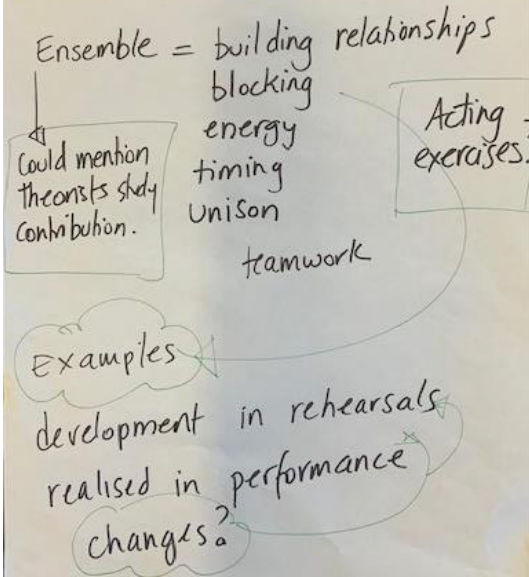 Ensemble = building relationships
blocking
energy
timing
unison
teamwork
Could mention
theorists study
contribution.
Acting
exercises.
Examples
development in rehearsals
realised in performance
changes?